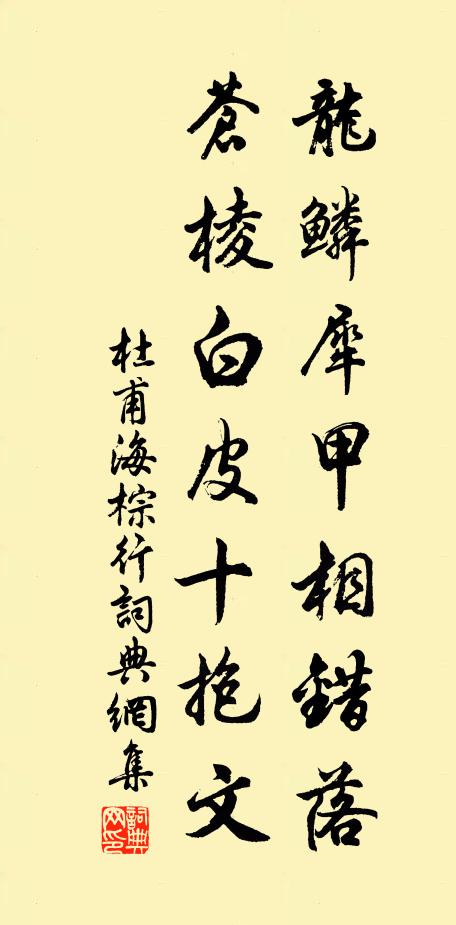 龍鱗犀甲相錯落
蒼棱白皮十抱文
杜甫海棕行詞典網集
詞典网印